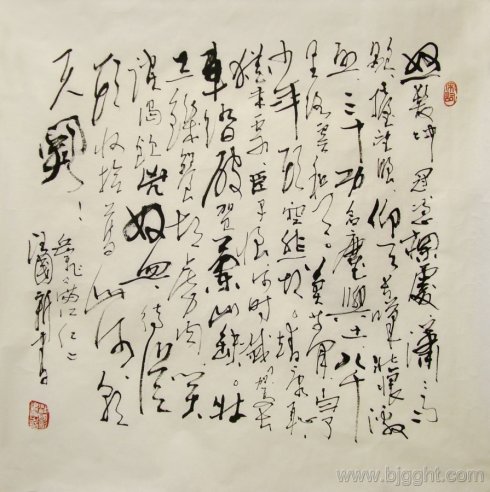 怒髮冲冠凭欄處瀟瀟雨
歇抬望眼仰天長嘯壯懷激
烈三十功名塵與土八千
里路雲和月莫等閒
少年頭空悲切靖康恥
猶未雪臣子恨何時滅駕長
車踏破賀蘭山缺壯
志飢餐胡虜肉笑
談渴飲匈奴血待從
頭收拾舊山河朝
天闕
岳飛滿江红
www.bjgght.com